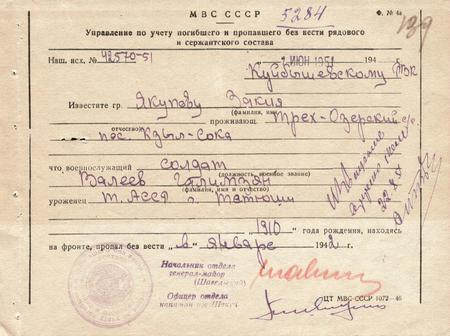 МВС СССР
5284
Ф. № 4а
139
Управление по учету погибшего и пропавшего без вести рядового
и сержантского состава
Наш. исх. № 42570-51
ИЮН 1951 194
Куйбышевскому РВК
Известите гр. Якупову Закия
(фамилия, имя,
отчество)
проживающ. Трех-Озерский с/с
пос. Кзыл-Сока
что военнослужащий солдат
(должность, военное звание)
Валеев Галимзян
(фамилия, имя и отчество)
уроженец т. АССР г. Татюши
1910 года рождения, находясь
на фронте, пропал без вести „в" январе 1942 г.
Начальник отдела
генерал-майор
Офицер отдела
22.8.51
ЦТ МВС СССР 1072—46